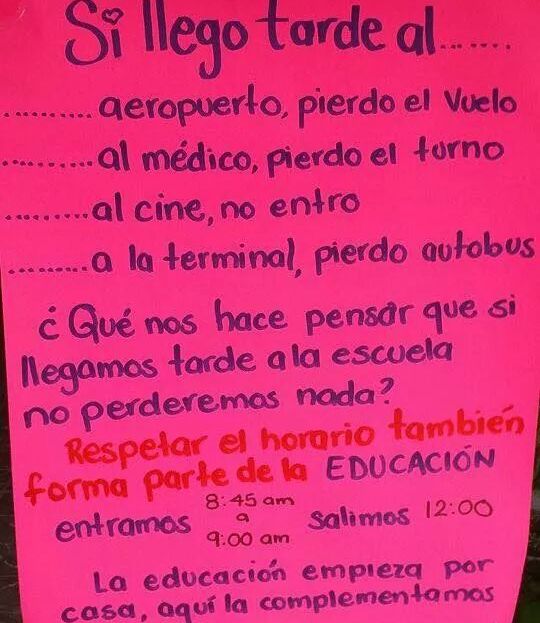 Si llego tarde al.......
.......... aeropuerto, pierdo el Vuelo
..........al médico, pierdo el turno
.........al cine, no entro
.........a la terminal, pierdo autobus
¿Qué nos hace pensar que si
llegamos tarde a la escuela
no perderemos nada?
Respetar el horario también
forma parte de la EDUCACIÓN
entramos 8:45 am a 9:00 am salimos 12:00
La educación empieza por
casa, aquí la complementamos